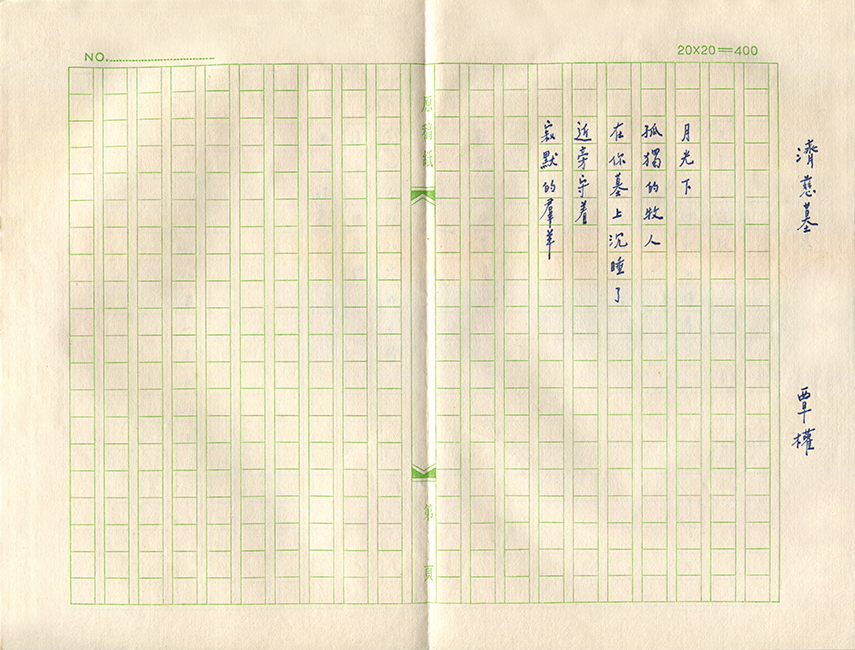 濟慈墓
覃權
20X20=400
月光下
孤獨的牧人
在你墓上沉睡了
近旁守着
寂默的羣羊
原稿紙
第　頁
NO.